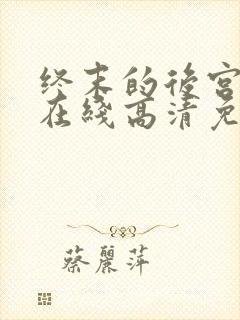 终末的後宫
在綫高清免
蔡麗萍